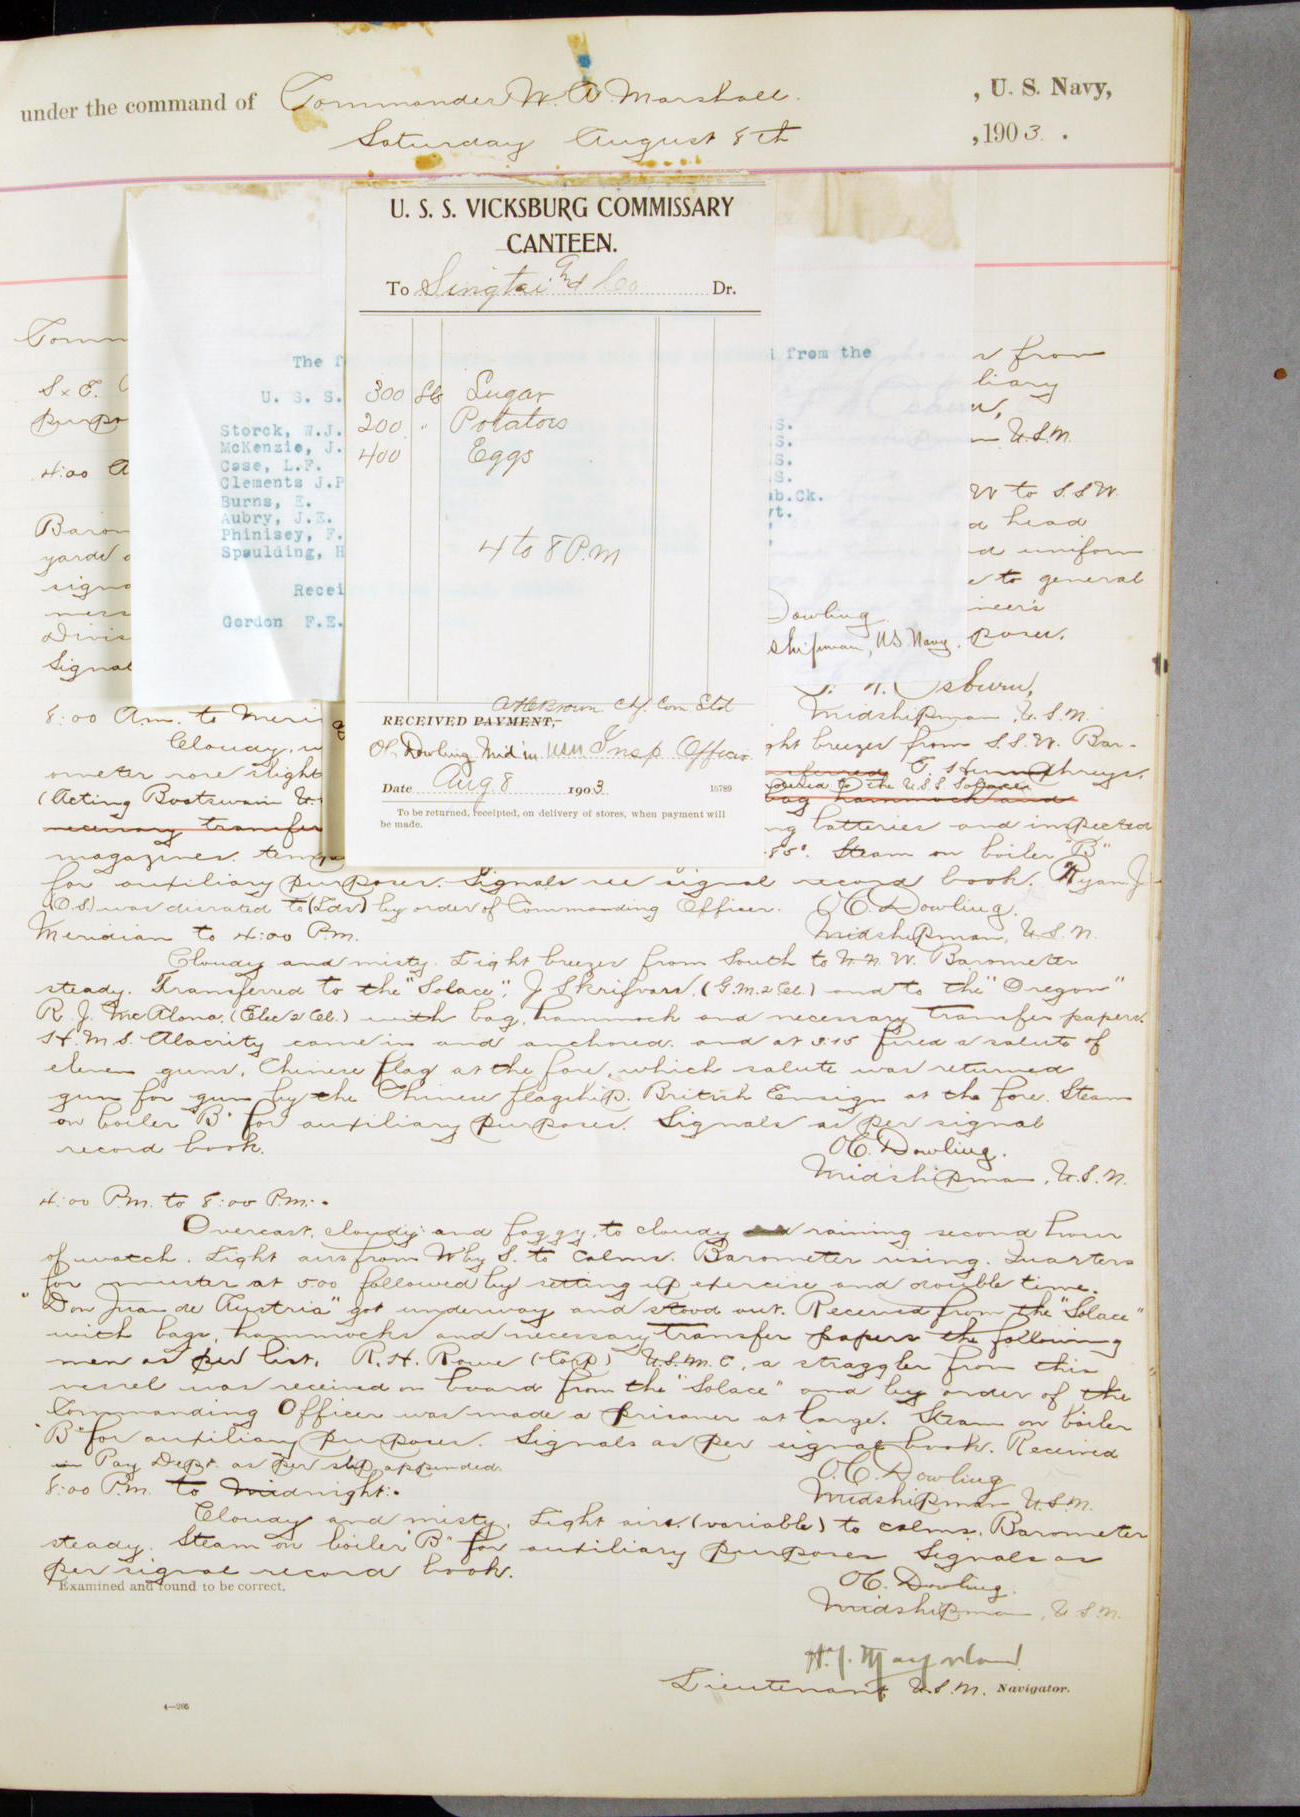 under the command of Commander W. A. Marshall. , U. S. Navy,
Saturday August 8th , 1903.
U. S. S. VICKSBURG COMMISSARY
CANTEEN.
To Singtai and Co Dr.
300 lb Sugar
200 " Potatoes
400 Eggs
4 to 8 P.M
Chf. Com. Std
RECEIVED PAYMENT,
O.C. Dowling Mid'n USN Insp. Officer
Date Aug 8 1903 15789
To be returned, receipted, on delivery of stores, when payment will
be made.
The f from the
U. S. S.
Storck, W.J. S.
McKenzie, J. S.
Case, L.F. S.
Clements J.P S.
Burns, E. ab.Ck.
Aubry, J.E. vt.
Phinisey, F.
Spaulding, H
Recei
Gordon F.E.
Dowling
Midshipman, US Navy.
Comm from
S & E. liary
purpo
U.S.N.
4:00 A W to S.S.W.
Baron d head
yards d uniform
signa to general
mess neer's
Divis poses.
Signal
Osburn,
8:00 A.m. to Meri Midshipman U.S.N.
Cloudy, ght breezes from S.S.W. Bar-
ometer rose slight T. Humphreys,
(Acting Boatswain U. to the U.S.S. Solace
necessary transfer bag hammock and
ng batteries and inspected
magazines. temp 85°. Steam on boiler "B"
for auxiliary purposes. Signals see signal record book. Ryan J
(O.S.) was disrated to (Lds) by order of Commanding Officer. O.C. Dowling.
Meridian to 4:00 P.m. Midshipman, U.S.N.
Cloudy and misty. Light breezes from South to N.N.W. Barometer
steady. Transferred to the "Solace", J Skrifvars, (G.M.2 Cl.) and to the "Oregon"
R. J. McAlona, (Elec 2 Cl.) with bag, hammock and necessary transfer papers.
H.M.S. Alacrity came in and anchored. and at 3:15 fired a salute of
eleven guns, Chinese flag at the fore, which salute was returned
gun for gun by the Chinese flagship. British Ensign at the fore. Steam
on boiler "B" for auxiliary purposes. Signals as per signal
record book. O.C. Dowling.
Midshipman, U.S.N.
4:00 P.m. to 8:00 P.m:-
Overcast, cloudy and foggy, to cloudy and raining second hour
of watch. Light airs from W by S. to calms. Barometer rising. Quarters
for muster at 5:00 followed by setting up exercise and double time.
"Don Juan de Austria" got underway and stood out. Received from the "Solace"
with bags, hammocks and necessary transfer papers the following
men as per list. R. H. Rowe (Corp) U.S.M.C, a straggler from this
vessel was received on board from the "Solace" and by order of the
Commanding Officer was made a prisoner at large. Steam on boiler
"B" for auxiliary purposes. Signals as per signal book. Received
in Pay Dept. as per slip appended. O.C. Dowling
8:00 P.m. to midnight:- Midshipman U.S.N.
Cloudy and misty. Light airs, (variable) to calms. Barometer
steady. Steam on boiler "B" for auxiliary purposes Signals as
per signal record book.
Examined and found to be correct. O.C. Dowling.
Midshipman, U.S.N.
Lieutenant, U.S.N. Navigator.
4—205